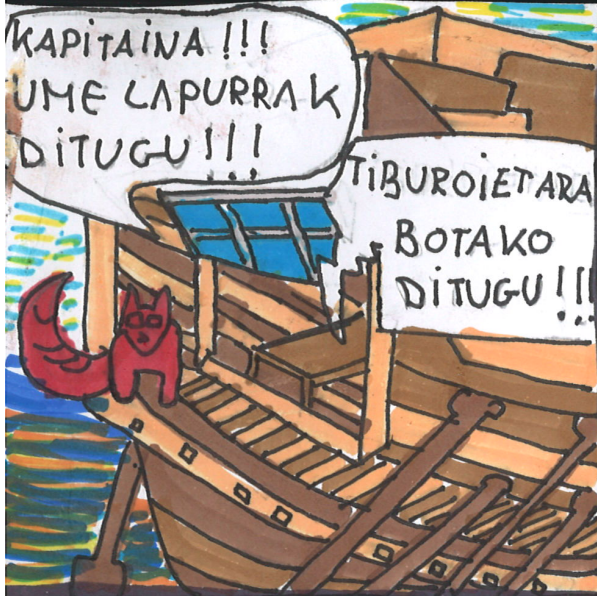 KAPITAINA!!!
UME LAPURRAK
DITUGU!!!
TIBUROIETARA
BOTAKO
DITUGU!!!